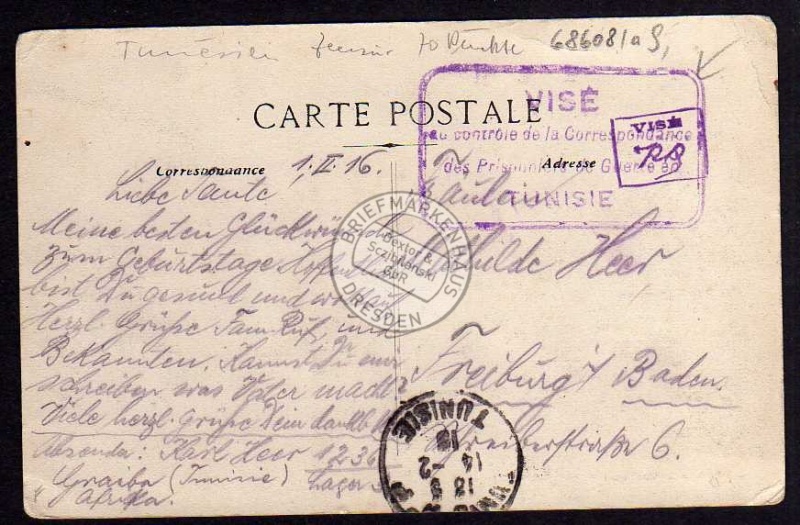 Tunesien Zensur 70 Punkte 686081a
CARTE POSTALE
VISÉ
au contrôle de la Correspondance
des Prisonniers de Guerre en
TUNISIE
VISÉ
Correspondance
Adresse
1.II.16.
Liebe Tante
Meine besten Glückwünsche
zum Geburtstage. Hoffentlich
bist Du gesund und
Herzl. Grüße Fam. Ruf, und
Bekannten. Kannst Du mir
schreiben was Vater macht?
Viele herzl. Grüße Dein dankb.
Absender: Karl Heer 1236
Graiba (Tunisie) Lager
Afrika.
Fräulein
Mathilde Heer
Freiburg i/ Baden.
Dreiherstraße 6.
BRIEFMARKENHAUS
Dextor &
Sczibilanski
GbR
DRESDEN
TUNIS
18 3
14 -2
16
TUNISIE